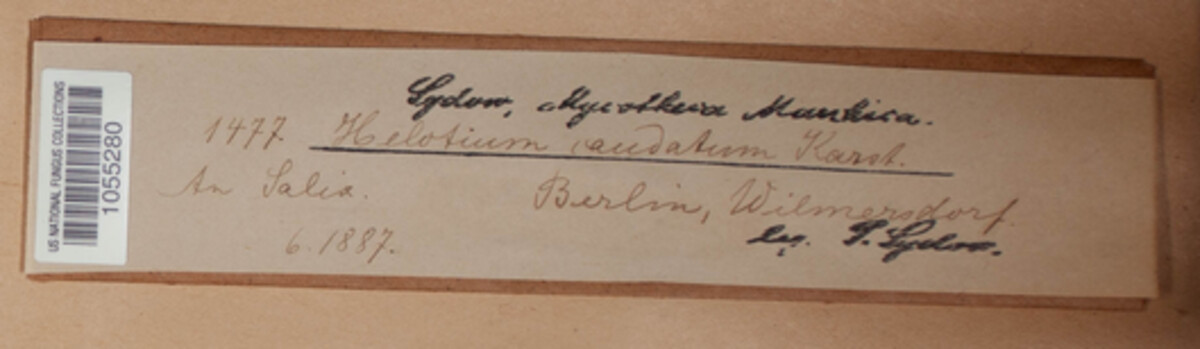 US NATIONAL FUNGUS COLLECTIONS
1055280
Sydow, Mycotheca Marchica.
1477. Helotium caudatum Karst.
An Salix. Berlin, Wilmersdorf.
6. 1887. leg. P. Sydow.